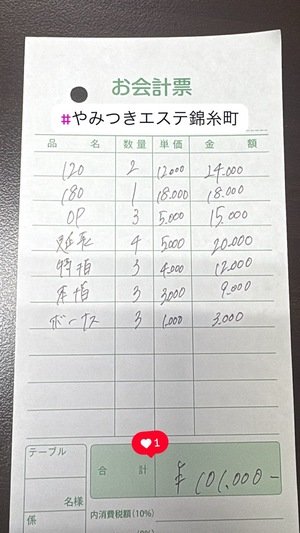 お会計票
#やみつきエステ錦糸町
品名 数量 単価 金額
120 2 12000 24.000
180 1 18.000 18.000
OP 3 5.000 15.000
延長 4 5000 20.000
特指 3 4.000 12.000
本指 3 3,000 9.000
ボーナス 3 1.000 3.000
1
テーブル
合計 ¥101.000-
名様
係
内消費税額(10%)